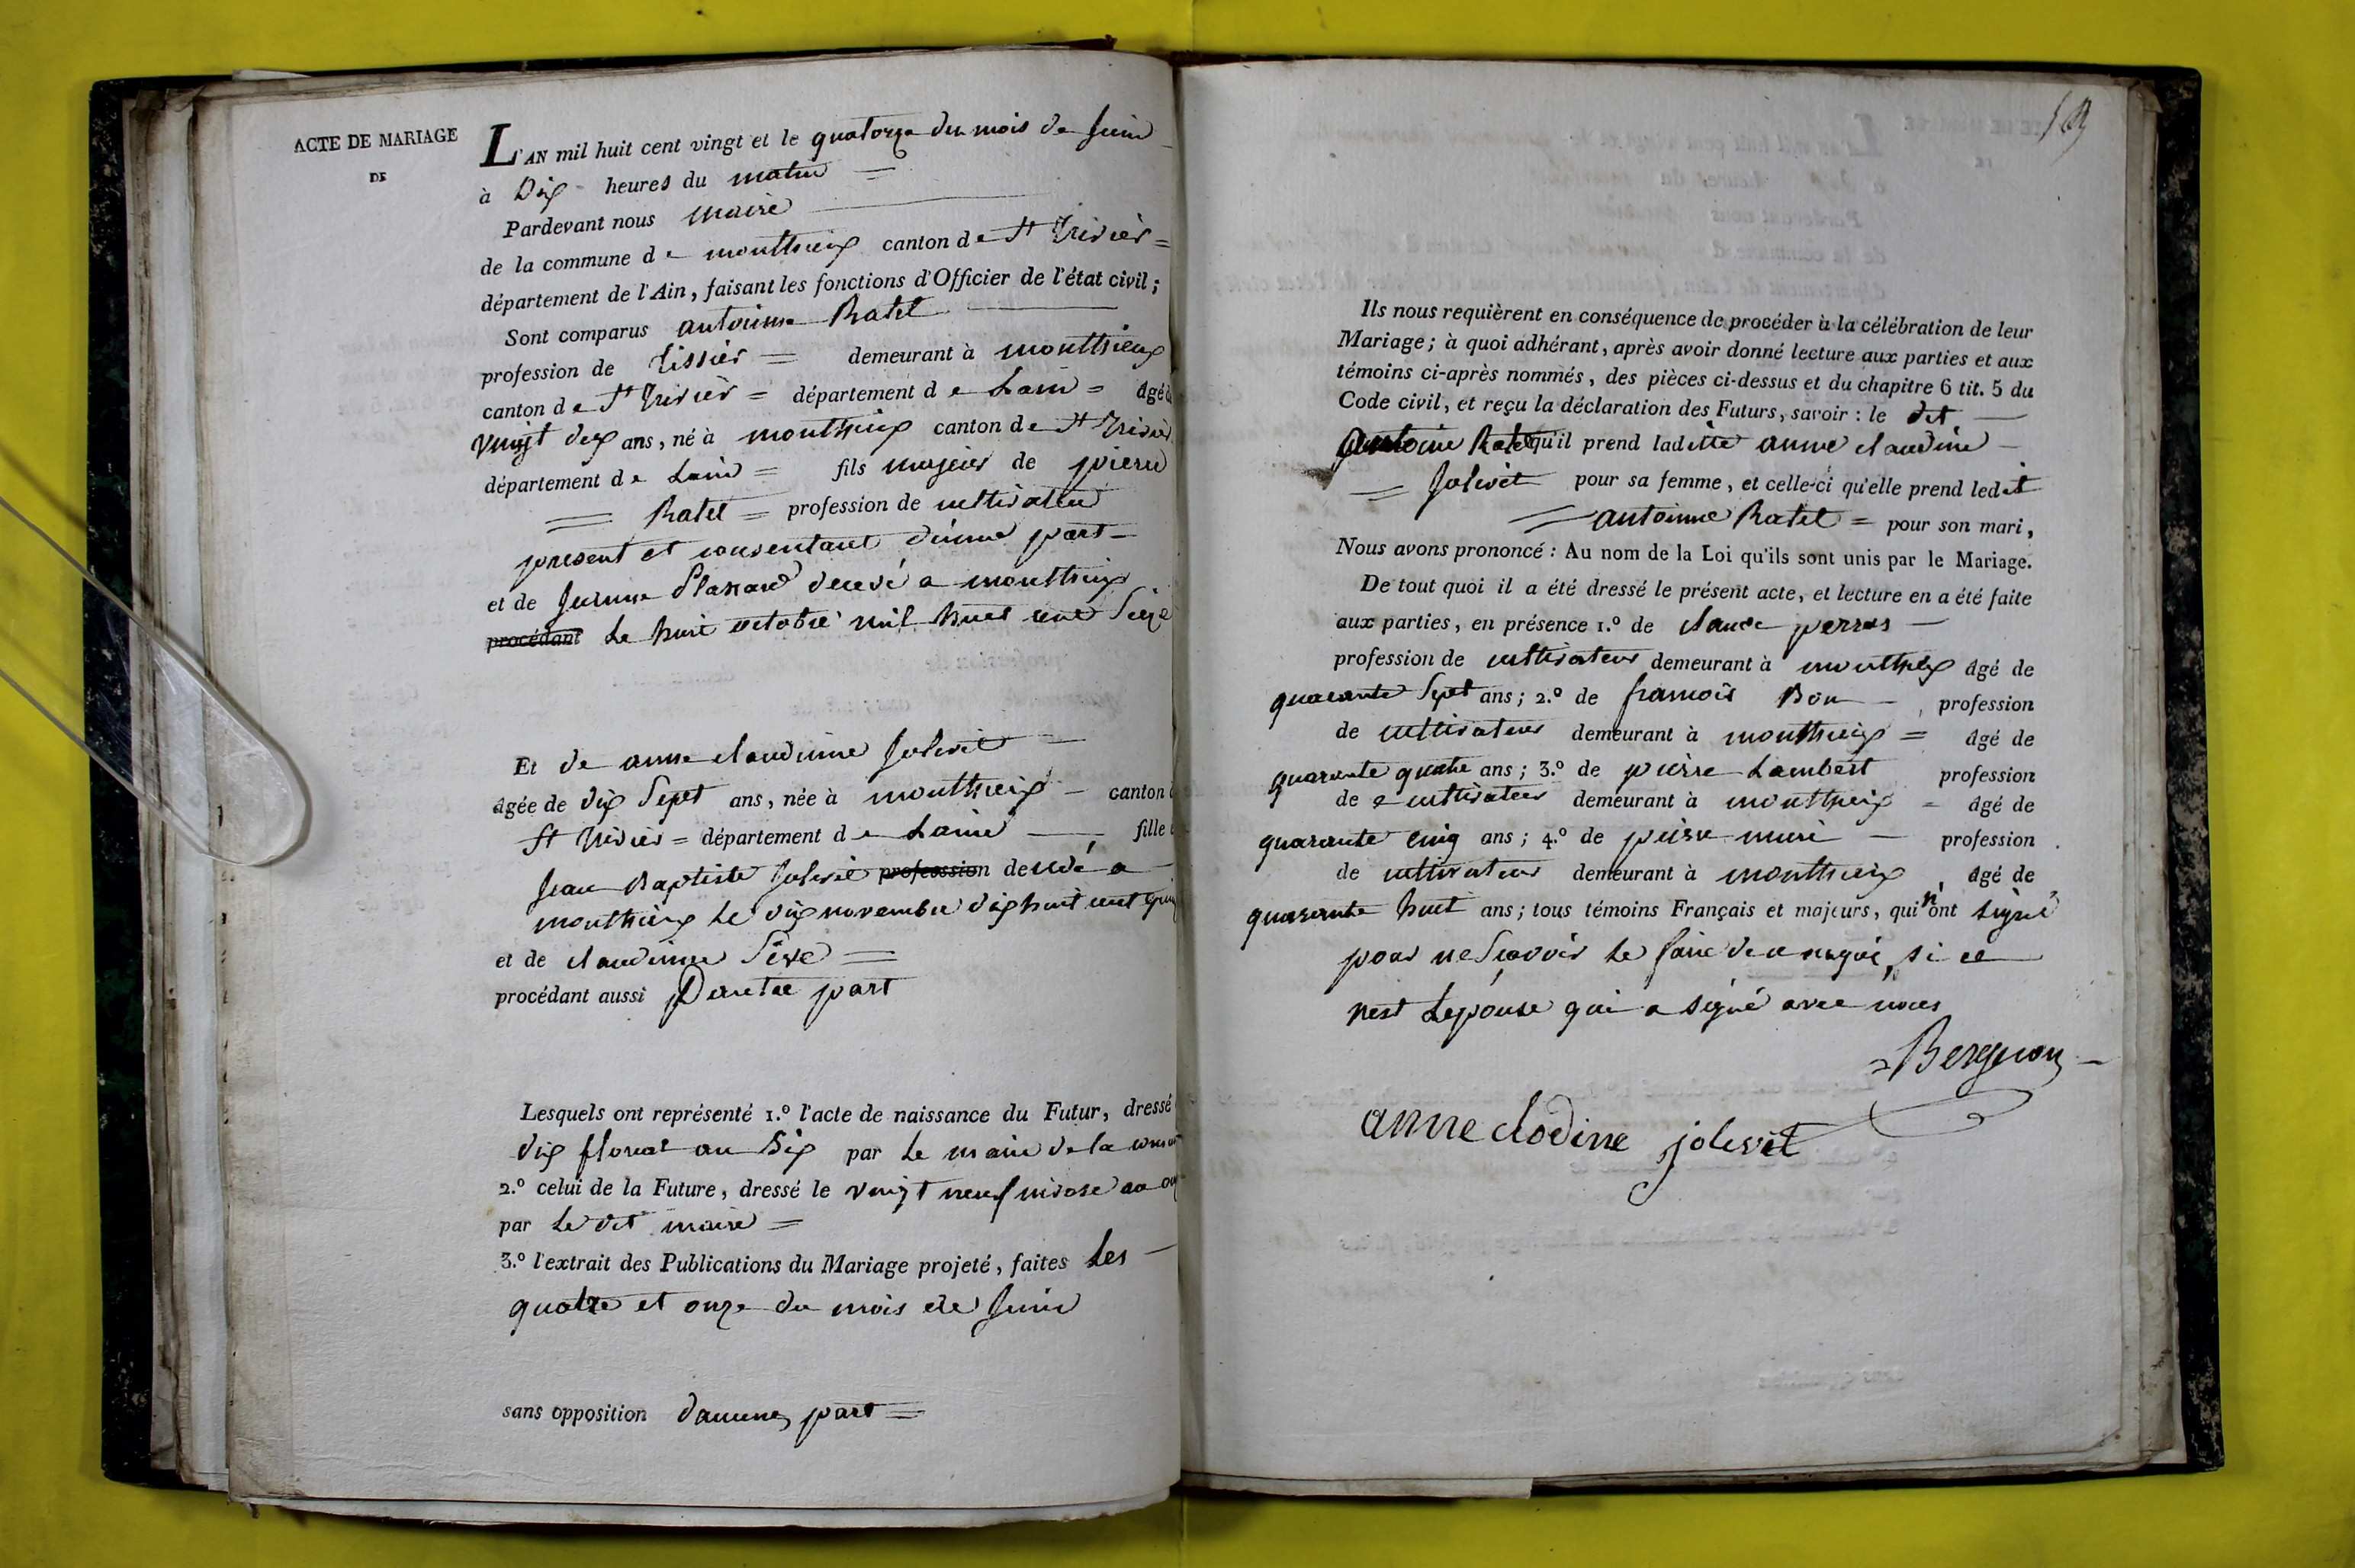 ACTE DE MARIAGE
DE
L'AN mil huit cent vingt et le quatorze du mois de juin
à Dix heures du matin =
Pardevant nous maire
de la commune de monthieux canton de St Trivier =
département de l'Ain, faisant les fonctions d'Officier de l'état civil;
Sont comparus antoinne Ratel
profession de tissier = demeurant à monthieux
canton de St Trivier = département de Lain = âgé de
vingt deux ans, né à monthieux canton de St Trivier
département de Lain = fils majeur de pierre
= Ratel = profession de cultivateur
present et consentant d'unne part
et de jeanne decedé a monthieux
procédant Le huit octobre mil huit cent Seize
Et de anne claudinne Jolivet =
âgée de dix Sept ans, née à monthieux - canton d
St Trivier = département de Lain - fille
Jean Baptiste Jolivet profession decedé a
monthieux Le dix novembre dix huit cent
et de claudinne Sève =
procédant aussi Dautre part
Lesquels ont représenté 1.º l'acte de naissance du Futur, dressé
dix floréal an Six par Le maire de la
2.º celui de la Future, dressé le vingt neuf nivose an
par Le dit maire =
3.º l'extrait des Publications du Mariage projeté, faites Les -
quatre et onze du mois de Juin
sans opposition daucunes part =
Ils nous requièrent en conséquence de procéder à la célébration de leur
Mariage; à quoi adhérant, après avoir donné lecture aux parties et aux
témoins ci-après nommés, des pièces ci-dessus et du chapitre 6 tit. 5 du
Code civil, et reçu la déclaration des Futurs, savoir: le dit -
antoine Ratel qu'il prend laditte anne claudine -
= Jolivet pour sa femme, et celle-ci qu'elle prend ledit
= antoinne Ratel = pour son mari,
Nous avons prononcé: Au nom de la Loi qu'ils sont unis par le Mariage.
De tout quoi il a été dressé le présent acte, et lecture en a été faite
aux parties, en présence 1.º de claude perras -
profession de cultivateur demeurant à monthieux âgé de
quarante Sept ans; 2.º de francois Bon - profession
de cultivateur demeurant à monthieux = âgé de
quarante quatre ans; 3.º de pierre Lambert profession
de cultivateur demeurant à monthieux = âgé de
quarante cinq ans; 4.º de pierre muri - profession
de cultivateur demeurant à monthieux âgé de
quarante huit ans; tous témoins Français et majeurs, qui n'ont signé
pour ne Sçavoir Le faire de ce requi, si ce
nest Lepouse qui a signé avec nous
anne clodine jolivet